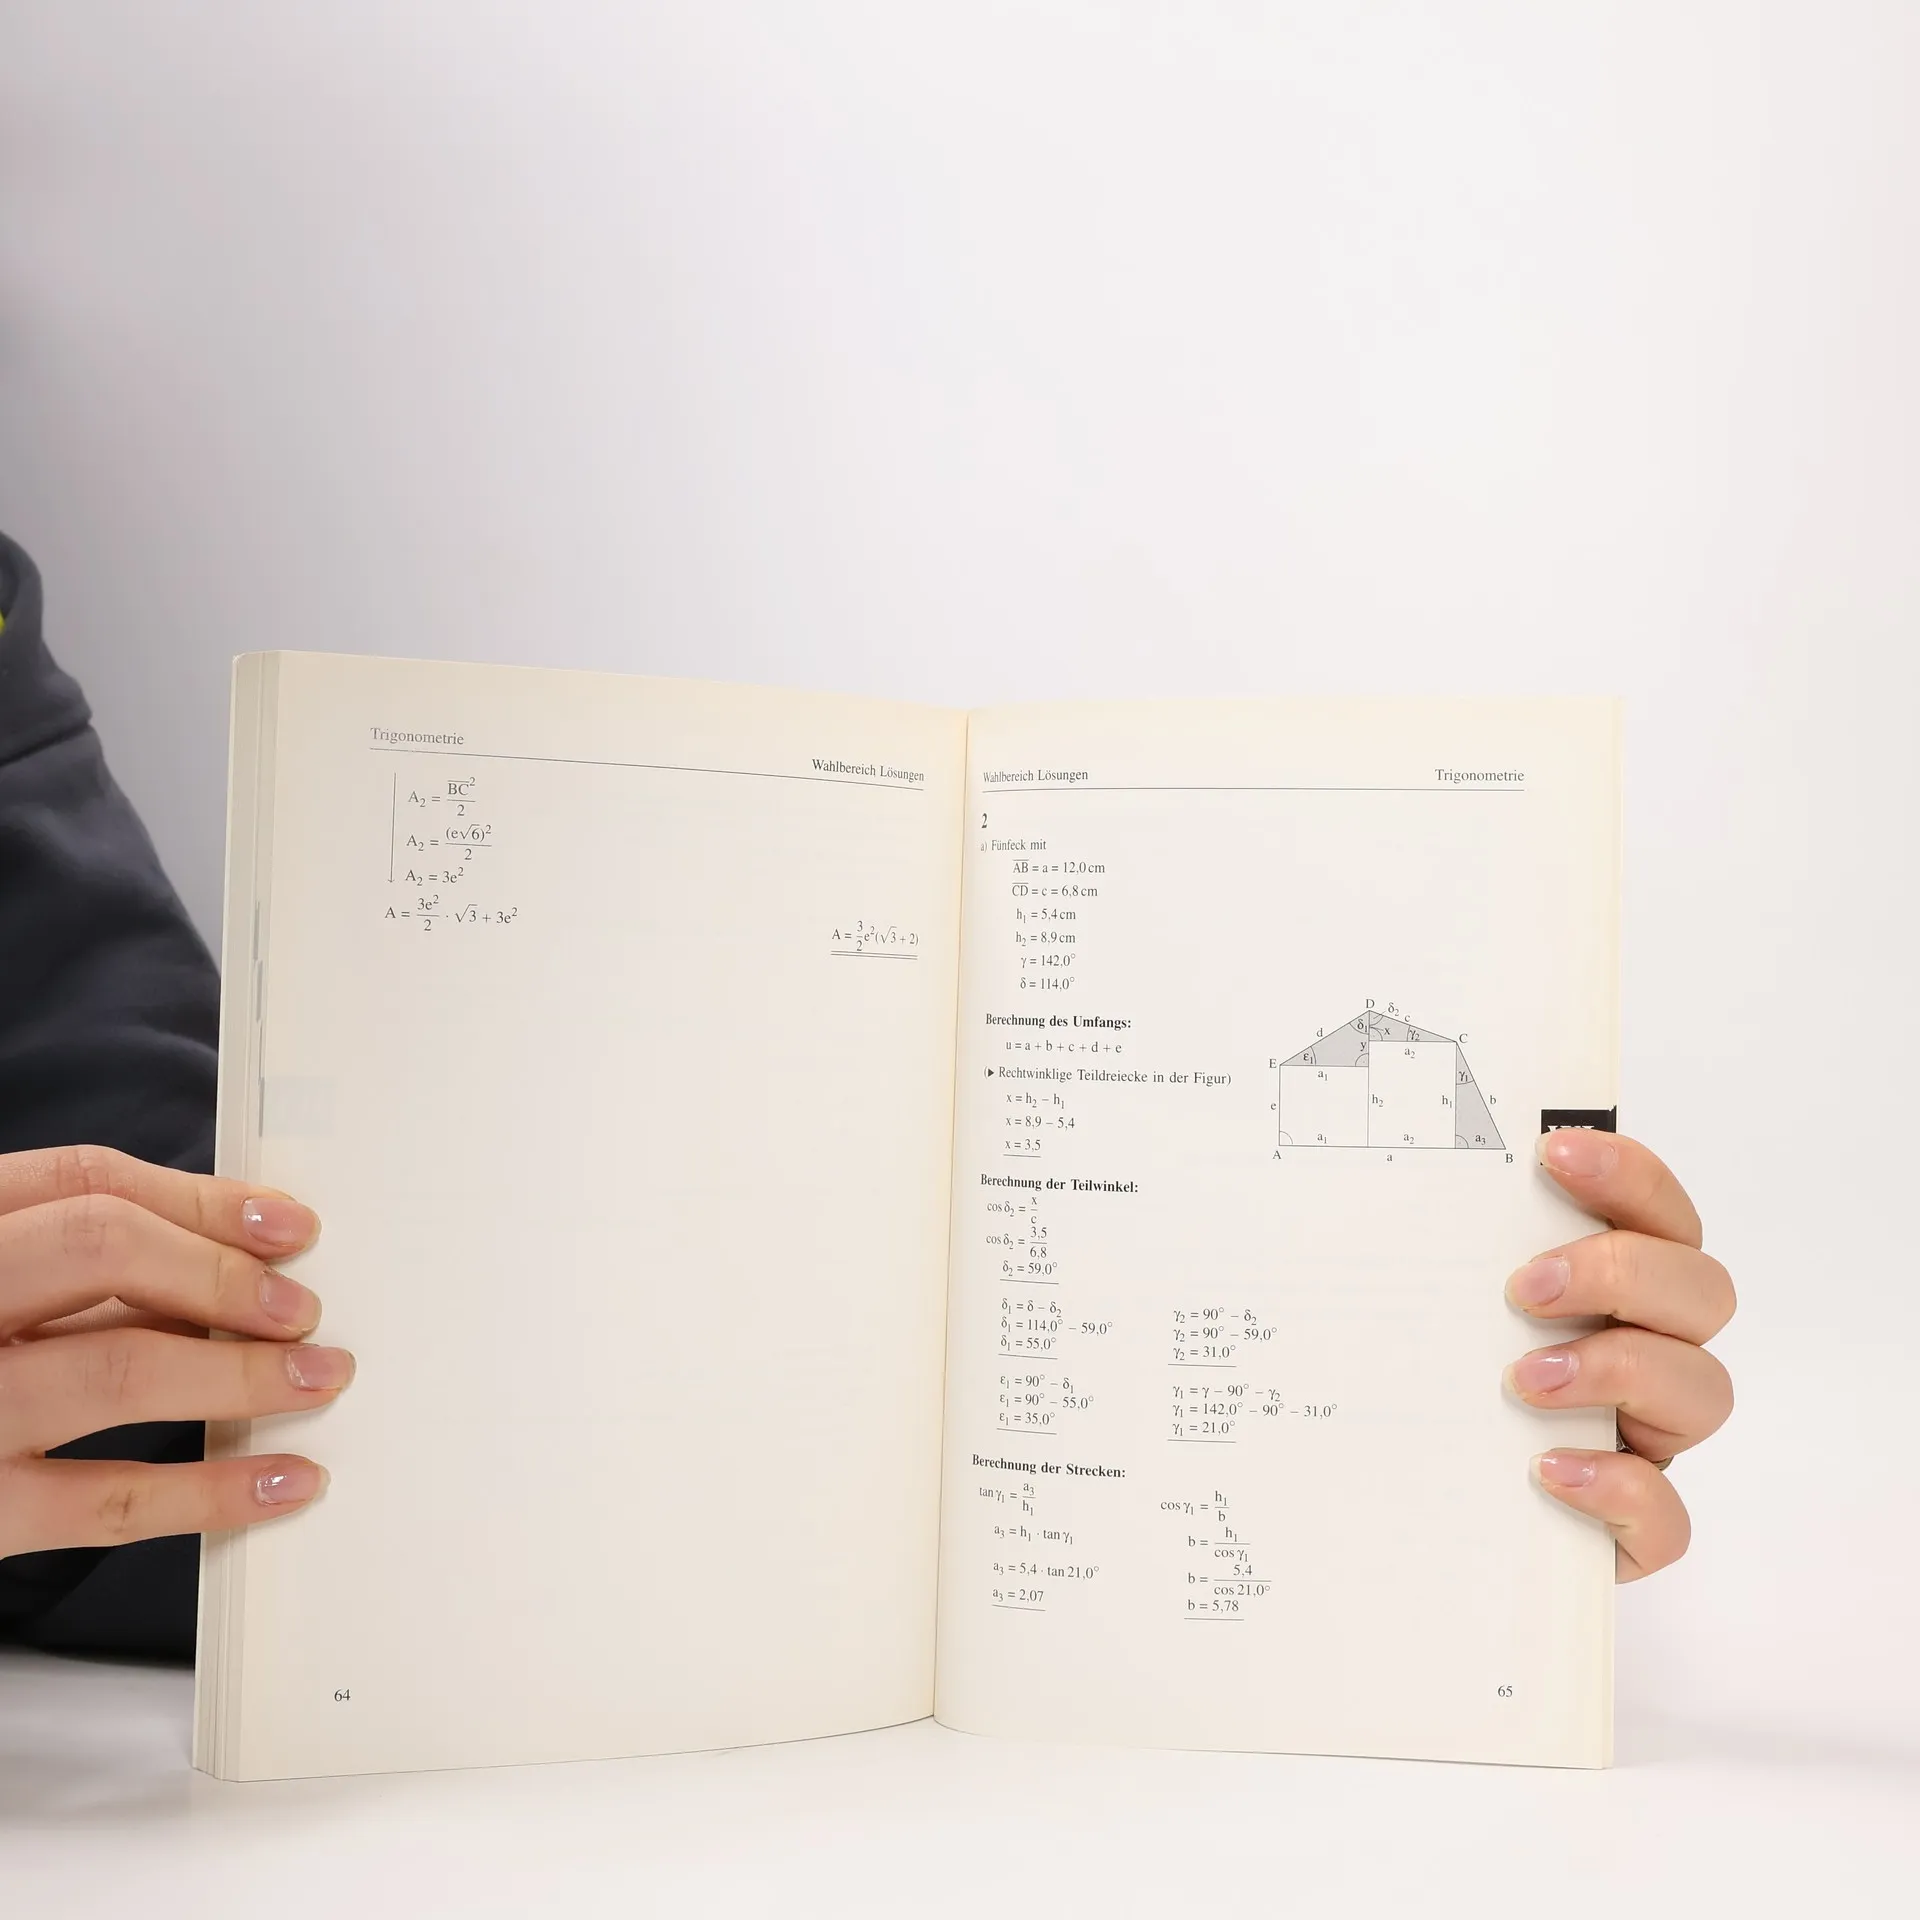 Trigonometrie
Wahlbereich Lösungen
A₂ = BC̅²/2
A₂ = (e√6)²/2
A₂ = 3e²
A = 3e²/2 · √3 + 3e²
A = 3/2 e²(√3 + 2)
64
Wahlbereich Lösungen
Trigonometrie
2
a) Fünfeck mit
A̅B̅ = a = 12,0 cm
C̅D̅ = c = 6,8 cm
h₁ = 5,4 cm
h₂ = 8,9 cm
γ = 142,0°
δ = 114,0°
Berechnung des Umfangs:
u = a + b + c + d + e
(▶ Rechtwinklige Teildreiecke in der Figur)
x = h₂ – h₁
x = 8,9 – 5,4
x = 3,5
D
δ₂
c
d
δ₁
x
γ₂
C
y
a₂
E
ε₁
a₁
γ₁
e
h₂
h₁
b
a₁
a₂
a₃
A
a
B
Berechnung der Teilwinkel:
cos δ₂ = x/c
cos δ₂ = 3,5/6,8
δ₂ = 59,0°
δ₁ = δ – δ₂
δ₁ = 114,0° – 59,0°
δ₁ = 55,0°
γ₂ = 90° – δ₂
γ₂ = 90° – 59,0°
γ₂ = 31,0°
ε₁ = 90° – δ₁
ε₁ = 90° – 55,0°
ε₁ = 35,0°
γ₁ = γ – 90° – γ₂
γ₁ = 142,0° – 90° – 31,0°
γ₁ = 21,0°
Berechnung der Strecken:
tan γ₁ = a₃/h₁
a₃ = h₁ · tan γ₁
a₃ = 5,4 · tan 21,0°
a₃ = 2,07
cos γ₁ = h₁/b
b = h₁/cos γ₁
b = 5,4/cos 21,0°
b = 5,78
65